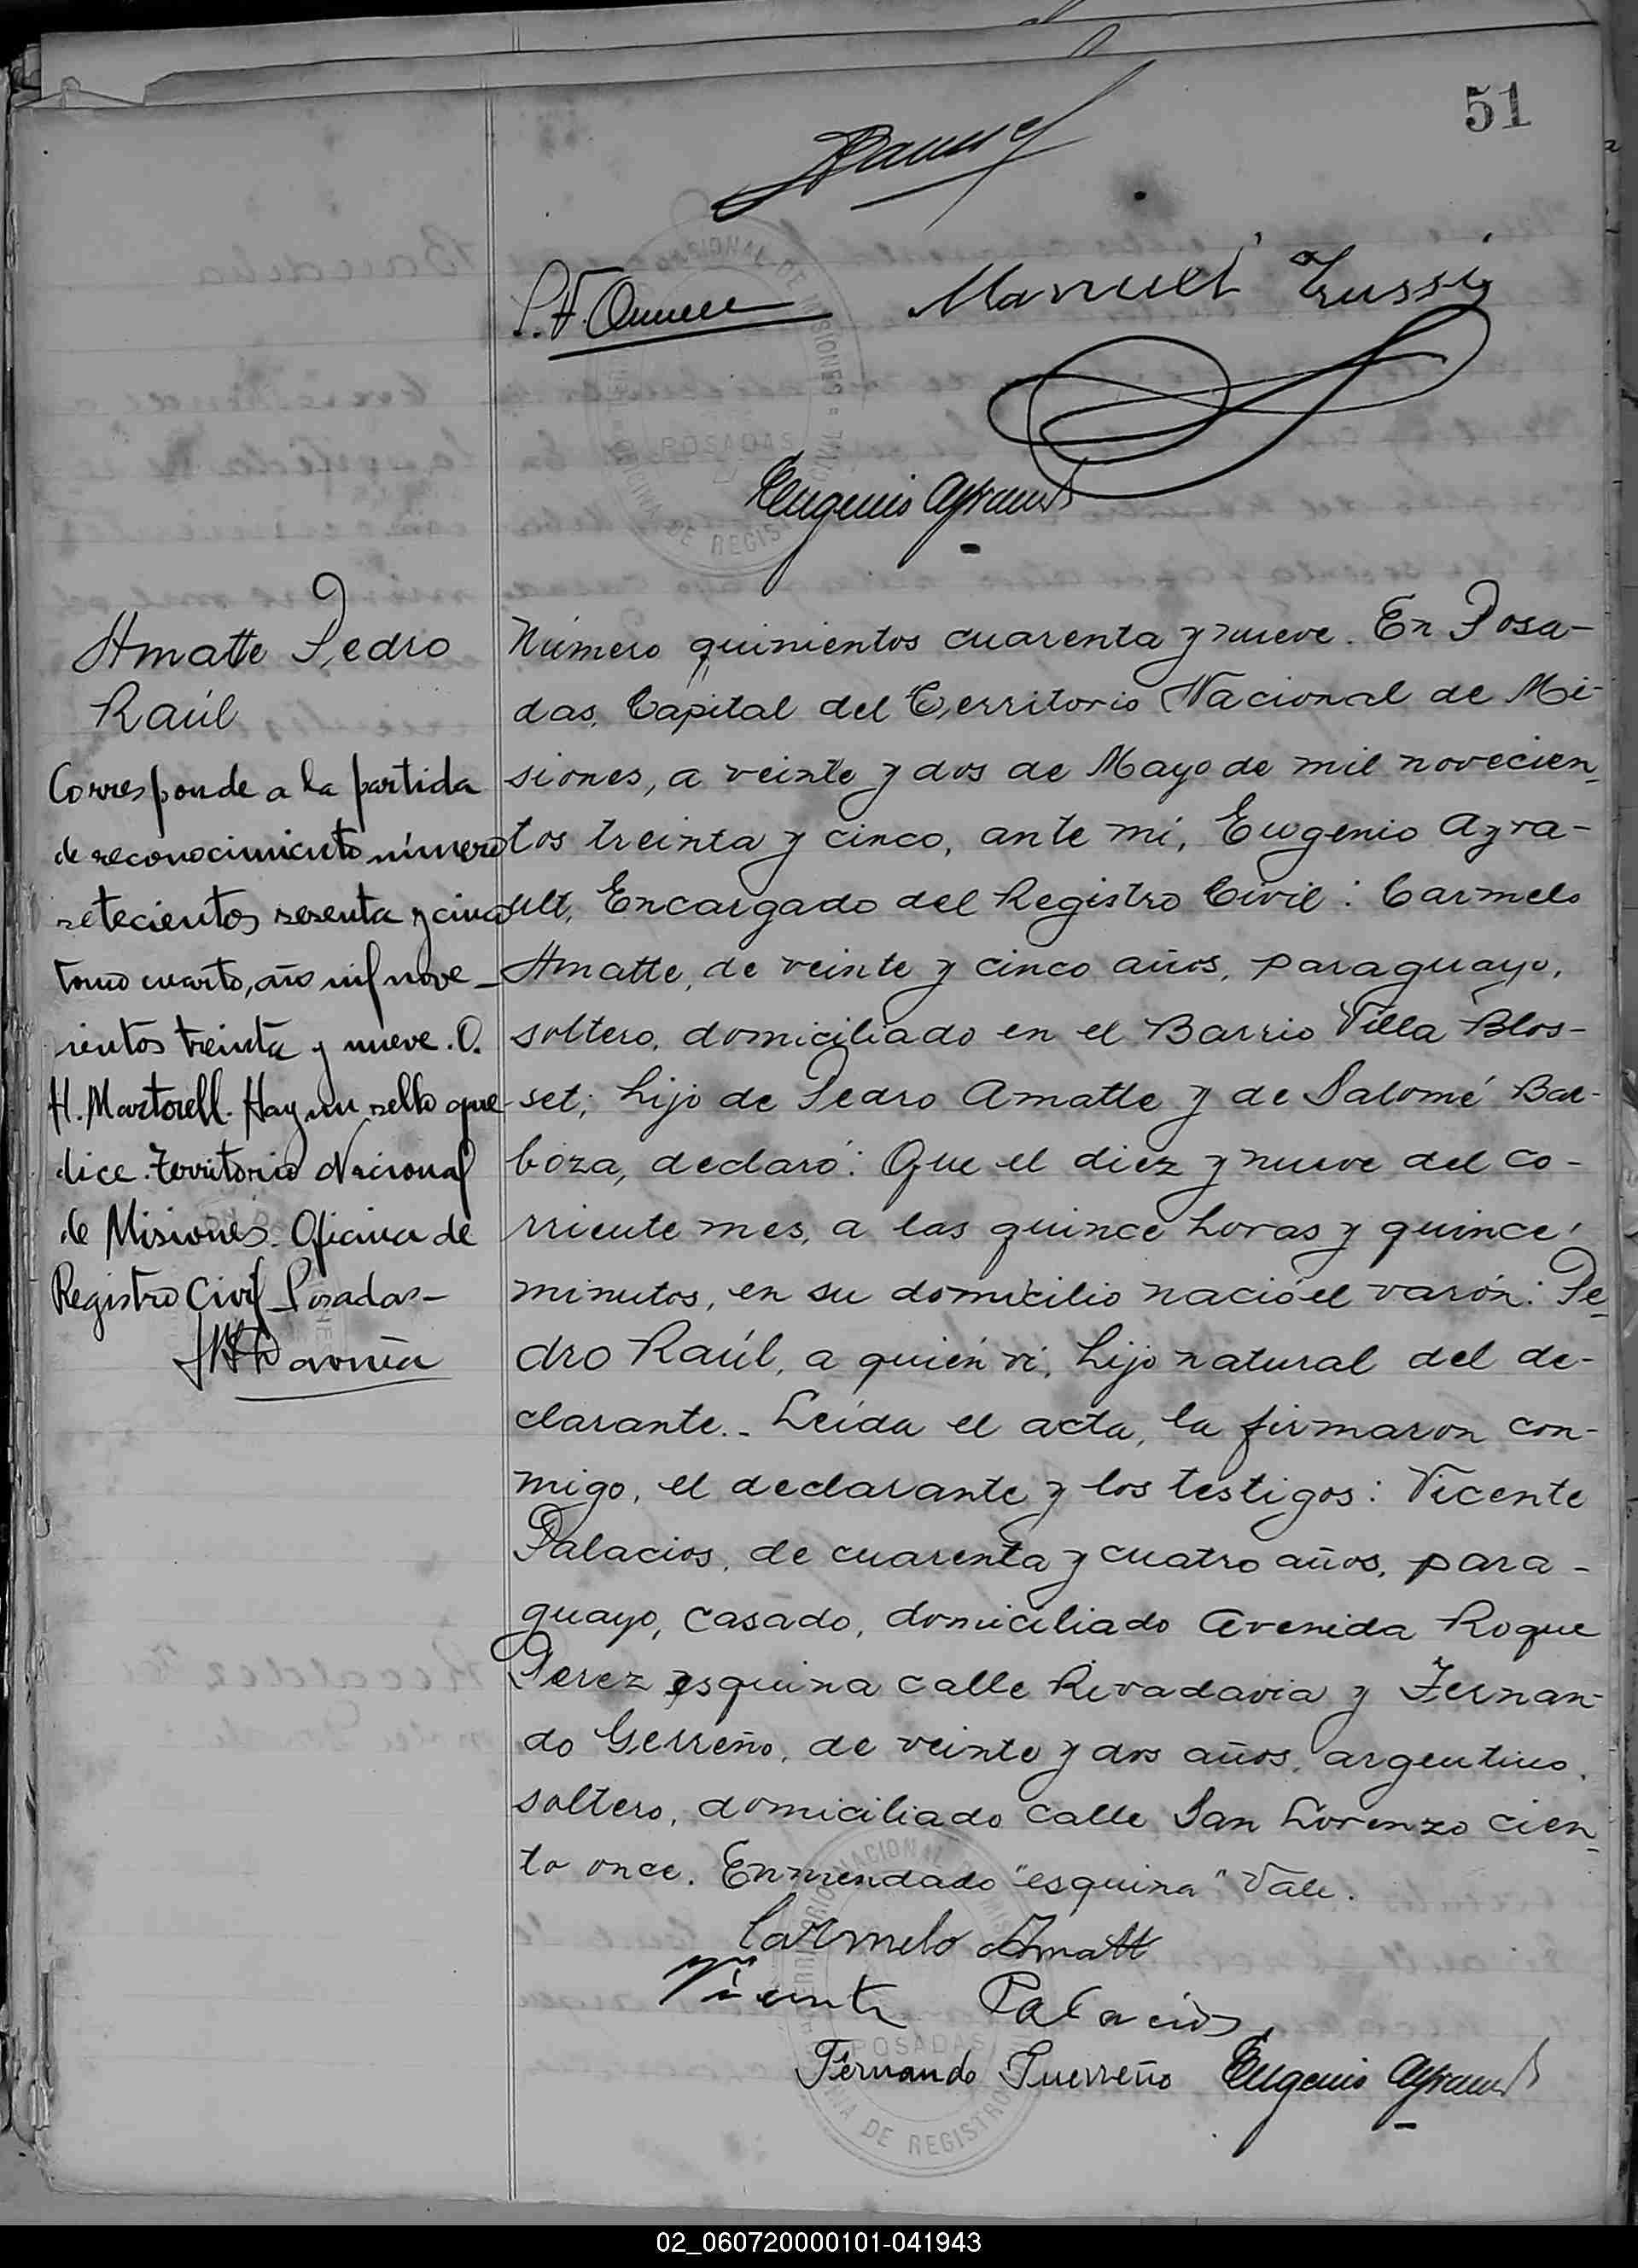 51
Manuel Trussi
Eugenio Ayrault
Amatte Pedro
Raúl
Corresponde a la partida
de reconocimiento número
setecientos sesenta y cinco
tomo cuarto, año mil nove-
cientos treinta y nueve. O.
H. Martorell. Hay un sello que
dice. Territorio Nacional
de Misiones. Oficina de
Registro Civil Posadas-
Número quinientos cuarenta y nueve. En Posa-
das, Capital del Territorio Nacional de Mi-
siones, a veinte y dos de Mayo de mil novecien-
tos treinta y cinco, ante mi, Eugenio Ayra-
ult, Encargado del Registro Civil: Carmelo
Amatte, de veinte y cinco años, paraguayo,
soltero, domiciliado en el Barrio Villa Blos-
set; hijo de Pedro Amatte y de Salomé Bar-
boza, declaró: Que el diez y nueve del co-
rriente mes, a las quince horas y quince
minutos, en su domicilio nació el varón: Pe-
dro Raúl, a quién vi, hijo natural del de-
clarante.- Leída el acta, la firmaron con-
migo, el declarante y los testigos: Vicente
Palacios, de cuarenta y cuatro años, para-
guayo, casado, domiciliado Avenida Roque
Perez esquina calle Rivadavia y Fernan-
do Gerreño, de veinte y dos años, argentino,
soltero, domiciliado calle San Lorenzo cien-
to once. Enmendado "esquina" Vale.
Carmelo Amatt
Vicente Palacios
Fernando Guerreño Eugenio Ayrault
TERRITORIO NACIONAL DE MISIONES
POSADAS
OFICINA DE REGISTRO
02_060720000101-041943